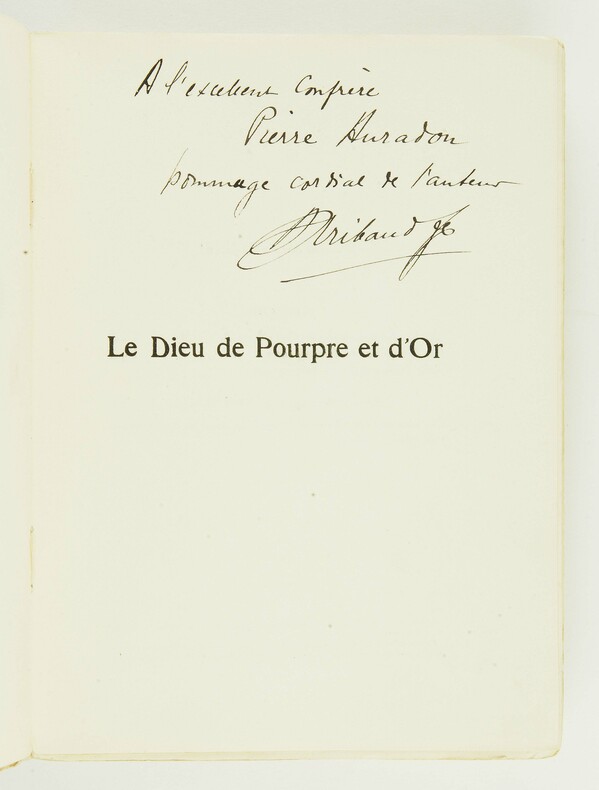 A l'excellent Confrère
Pierre Huradon
hommage cordial de l'auteur
Le Dieu de Pourpre et d'Or